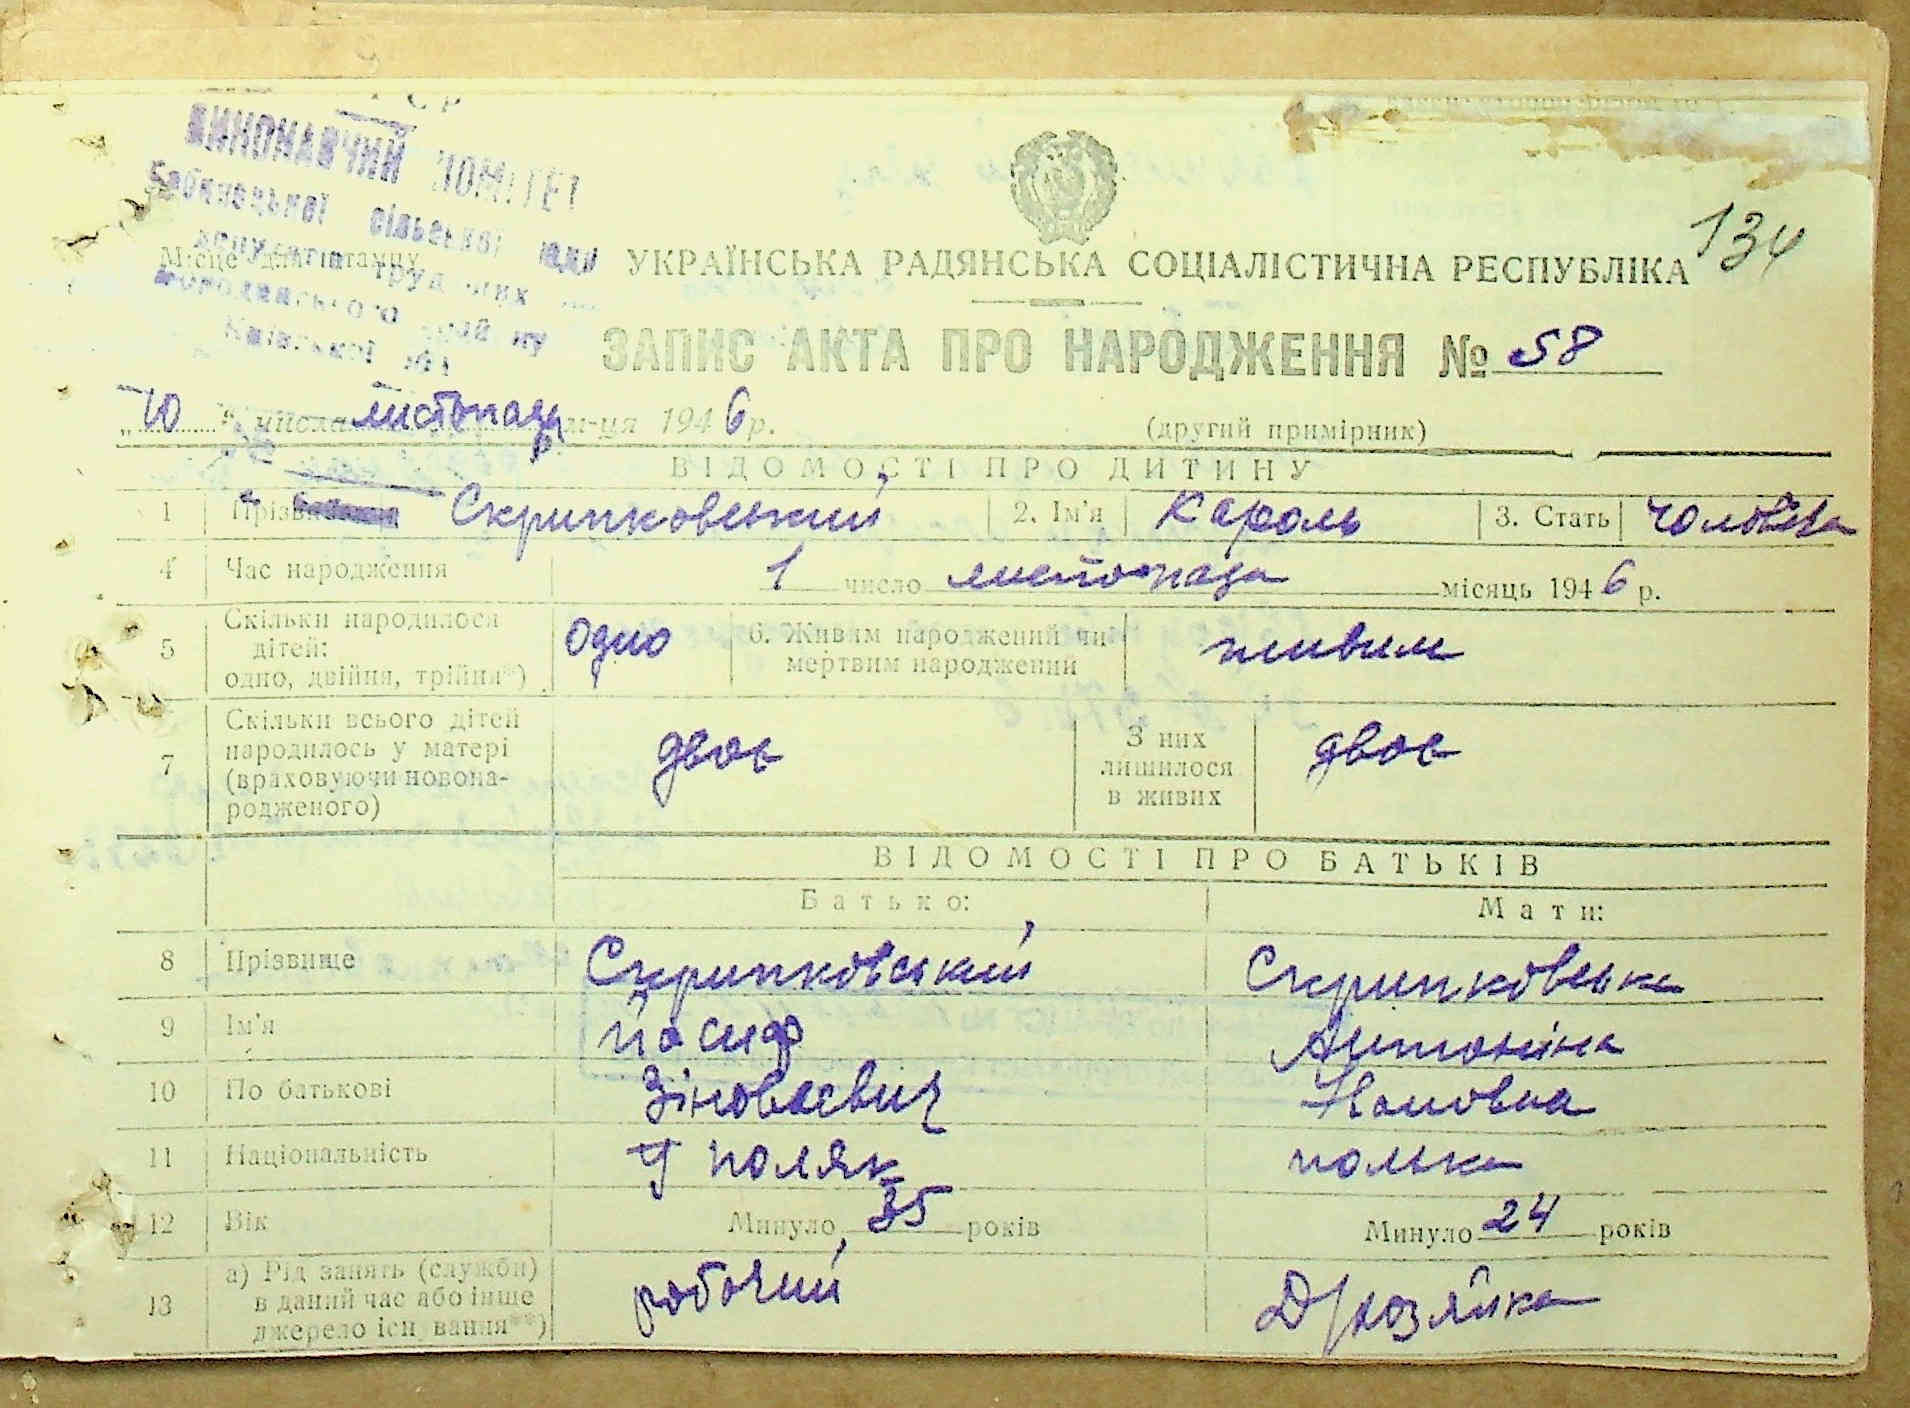 134
ВИКОНАВЧИЙ КОМІТЕТ
Бабинецької сільської ради
депутатів трудящих
Бородянського району
Київської обл
Місце для штампу
УКРАЇНСЬКА РАДЯНСЬКА СОЦІАЛІСТИЧНА РЕСПУБЛІКА
ЗАПИС АКТА ПРО НАРОДЖЕННЯ № 58
„10“ числа листопада м-ця 1946 р. (другий примірник)
ВІДОМОСТІ ПРО ДИТИНУ
1 Прізвище Скрипковський 2. Ім'я Кароль 3. Стать чоловіча
4 Час народження 1 число листопада місяць 1946 р.
5 Скільки народилося дітей: одно, двійня, трійня*) одно 6. Живим народжений чи мертвим народжений живим
7 Скільки всього дітей народилось у матері (враховуючи новонародженого) двоє З них лишилося в живих двоє
ВІДОМОСТІ ПРО БАТЬКІВ
Батько: Мати:
8 Прізвище Скрипковський Скрипковська
9 Ім'я Йосиф Антоніна
10 По батькові Зіновієвич Івановна
11 Національність поляк полька
12 Вік Минуло 35 років Минуло 24 років
13 а) Рід занять (служби) в даний час або інше джерело існування**) робочий Д/хозяйка